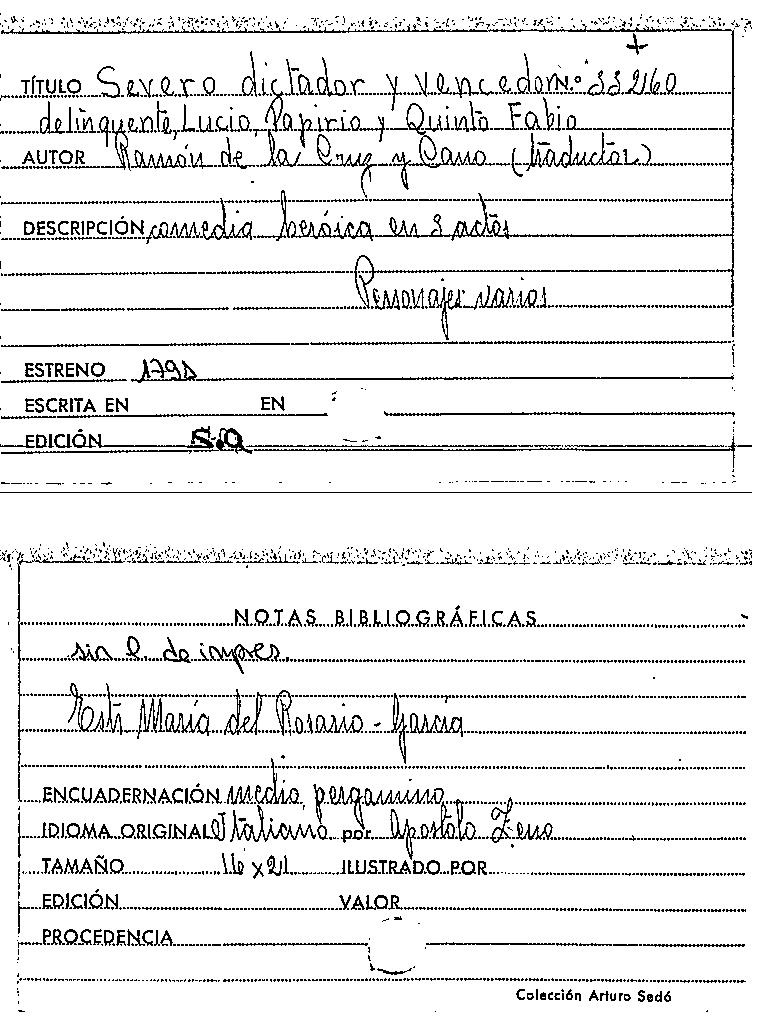 +
TÍTULO Severo dictador y vencedor N.º 332160
delinquente, Lucio, Papirio y Quinto Fabio
AUTOR Ramón de la Cruz y Cano (traductor)
DESCRIPCIÓN comedia heróica en 3 actos
Personajes varios
ESTRENO 1791
ESCRITA EN EN
EDICIÓN S.a
NOTAS BIBLIOGRÁFICAS
sin l. de impres.
Estr María del Rosario - García
ENCUADERNACIÓN media pergamino
IDIOMA ORIGINAL Italiano por Apostolo Zeno
TAMAÑO 16 x 21 ILUSTRADO POR
EDICIÓN VALOR
PROCEDENCIA
Colección Arturo Sedó